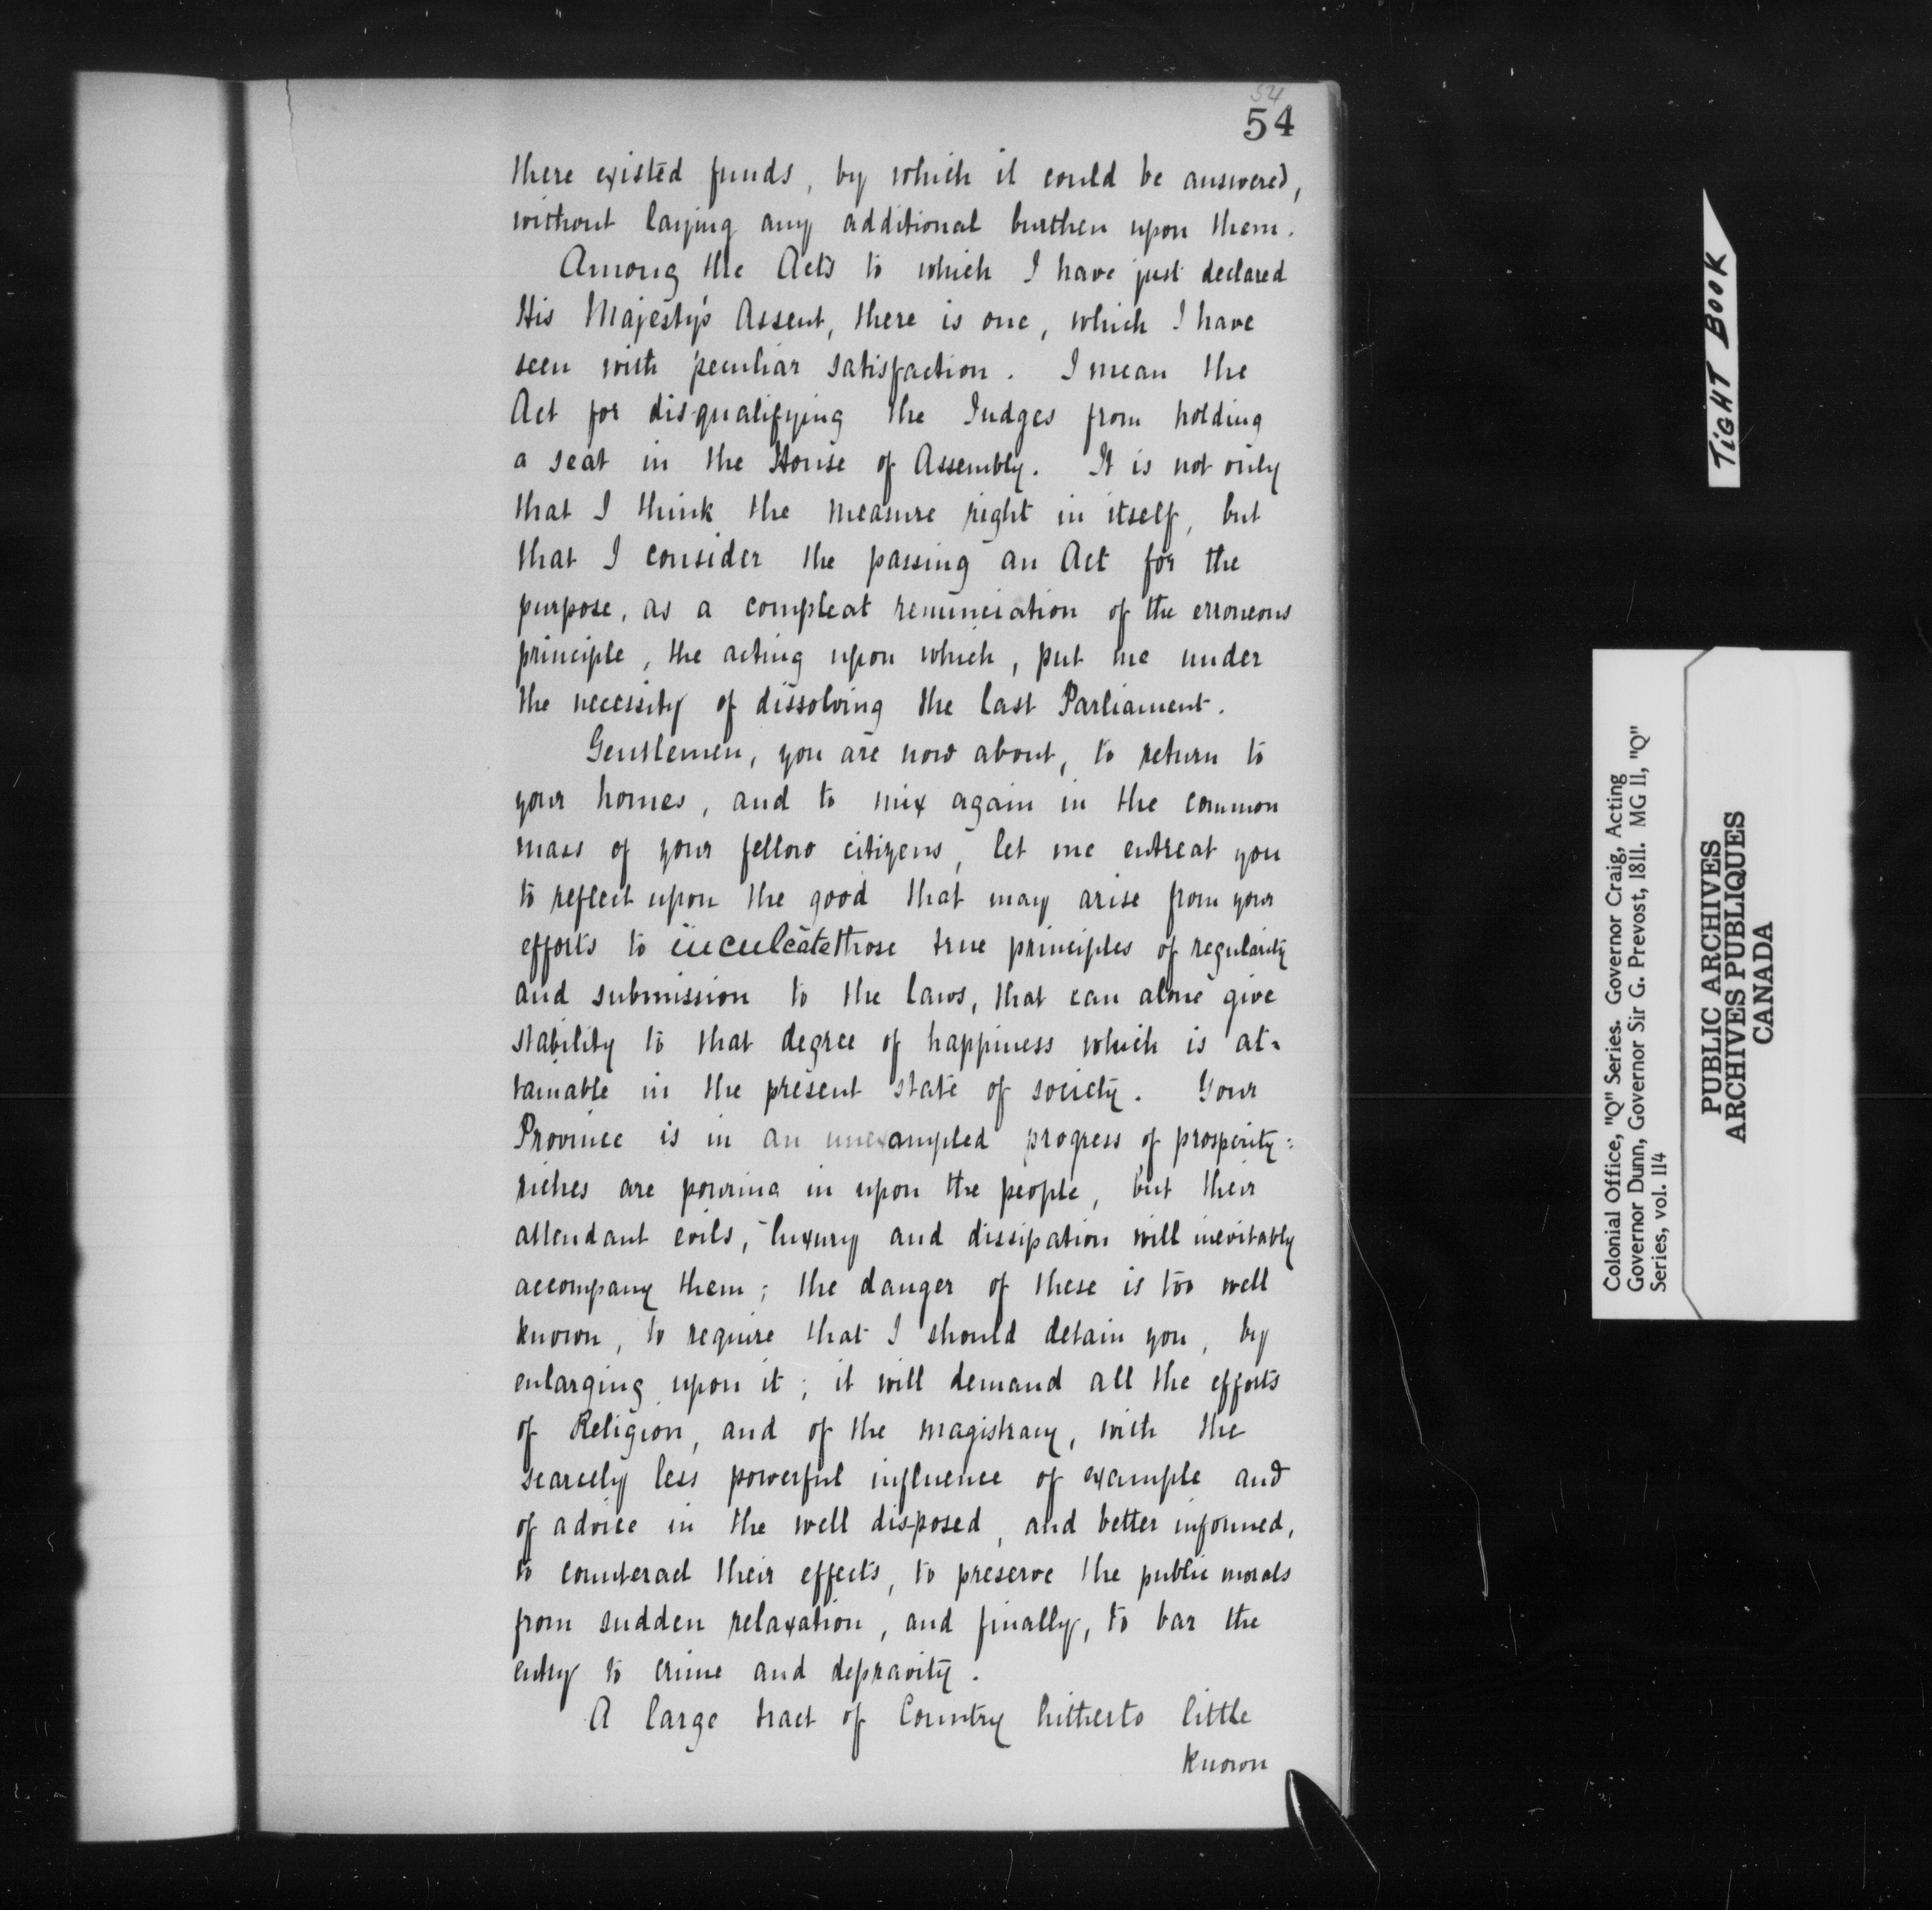 54
54
there existed funds, by which it could be answered,
without laying any additional burthen upon them.
Among the Acts to which I have just declared
His Majesty's Assent, there is one, which I have
seen with peculiar satisfaction. I mean the
Act for disqualifying the Judges from holding
a seat in the House of Assembly. It is not only
that I think the measure right in itself, but
that I consider the passing an Act for the
purpose, as a compleat renunciation of the erroneous
principle, the acting upon which, put me under
the necessity of dissolving the last Parliament.
Gentlemen, you are now about, to return to
your homes, and to mix again in the common
mass of your fellow citizens, let me entreat you
to reflect upon the good that may arise from your
efforts to inculcate those true principles of regularity
and submission to the laws, that can alone give
stability to that degree of happiness which is at-
tainable in the present state of society. Your
Province is in an unexampled progress of prosperity:
riches are pouring in upon the people, but their
attendant evils, luxury and dissipation will inevitably
accompany them; the danger of these is too well
known, to require that I should detain you, by
enlarging upon it; it will demand all the efforts
of Religion, and of the magistracy, with the
scarcely less powerful influence of example and
of advice in the well disposed, and better informed,
to counteract their effects, to preserve the public morals
from sudden relaxation, and finally, to bar the
entry to crime and depravity.
A large tract of Country hitherto little
known
TIGHT BOOK
Colonial Office, "Q" Series. Governor Craig, Acting
Governor Dunn, Governor Sir G. Prevost, 1811. MG 11, "Q"
Series, vol. 114
PUBLIC ARCHIVES
ARCHIVES PUBLIQUES
CANADA